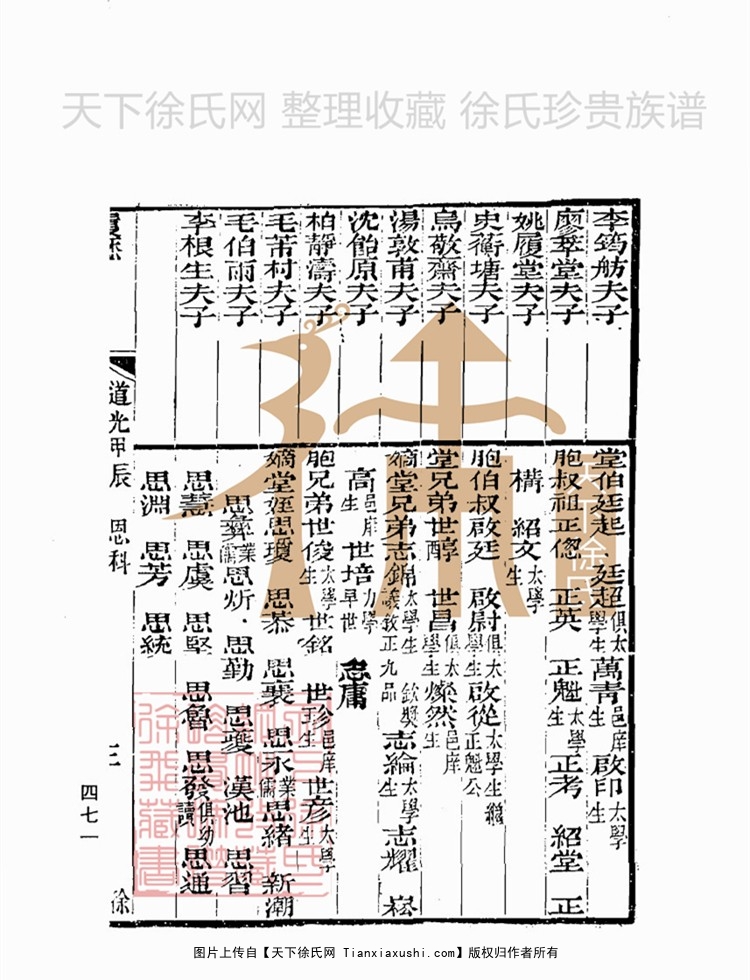 天下徐氏网 整理收藏 徐氏珍贵族谱
李筠舫夫子
廖莘堂夫子
姚履堂夫子
史衢塘夫子
烏敬齋夫子
湯敦甫夫子
沈飴原夫子
柏靜濤夫子
毛芾村夫子
毛伯雨夫子
李根生夫子
堂伯廷起 廷超俱太學生 萬青邑庠生 啟印太學生
胞叔祖正偬 正英 正魁太學生 正考 紹堂 正
構 紹文太學生
胞伯叔啟廷 啟尉俱太學生 啟從太學生繼正魁公
堂兄弟世醇 世昌俱太學生 燦然邑庠生
嫡堂兄弟志錦太學生欽獎議敘正九品 志綸太學生 志耀 崧
高邑庠生 世培力學早世 志庸
胞兄弟世俊太學生 世銘 世珍邑庠生 世彥太學生
嫡堂姪思瓊 思恭 思襄 思永業儒 思緒 新潮
思彝業儒 思炘 思勤 思夔 漢池 思習
思慧 思虞 思堅 思魯 思發俱幼讀 思通
思淵 思芳 思統
道光甲辰 恩科
三
四七一
徐
图片上传自【天下徐氏网 Tianxiaxushi.com】版权归作者所有